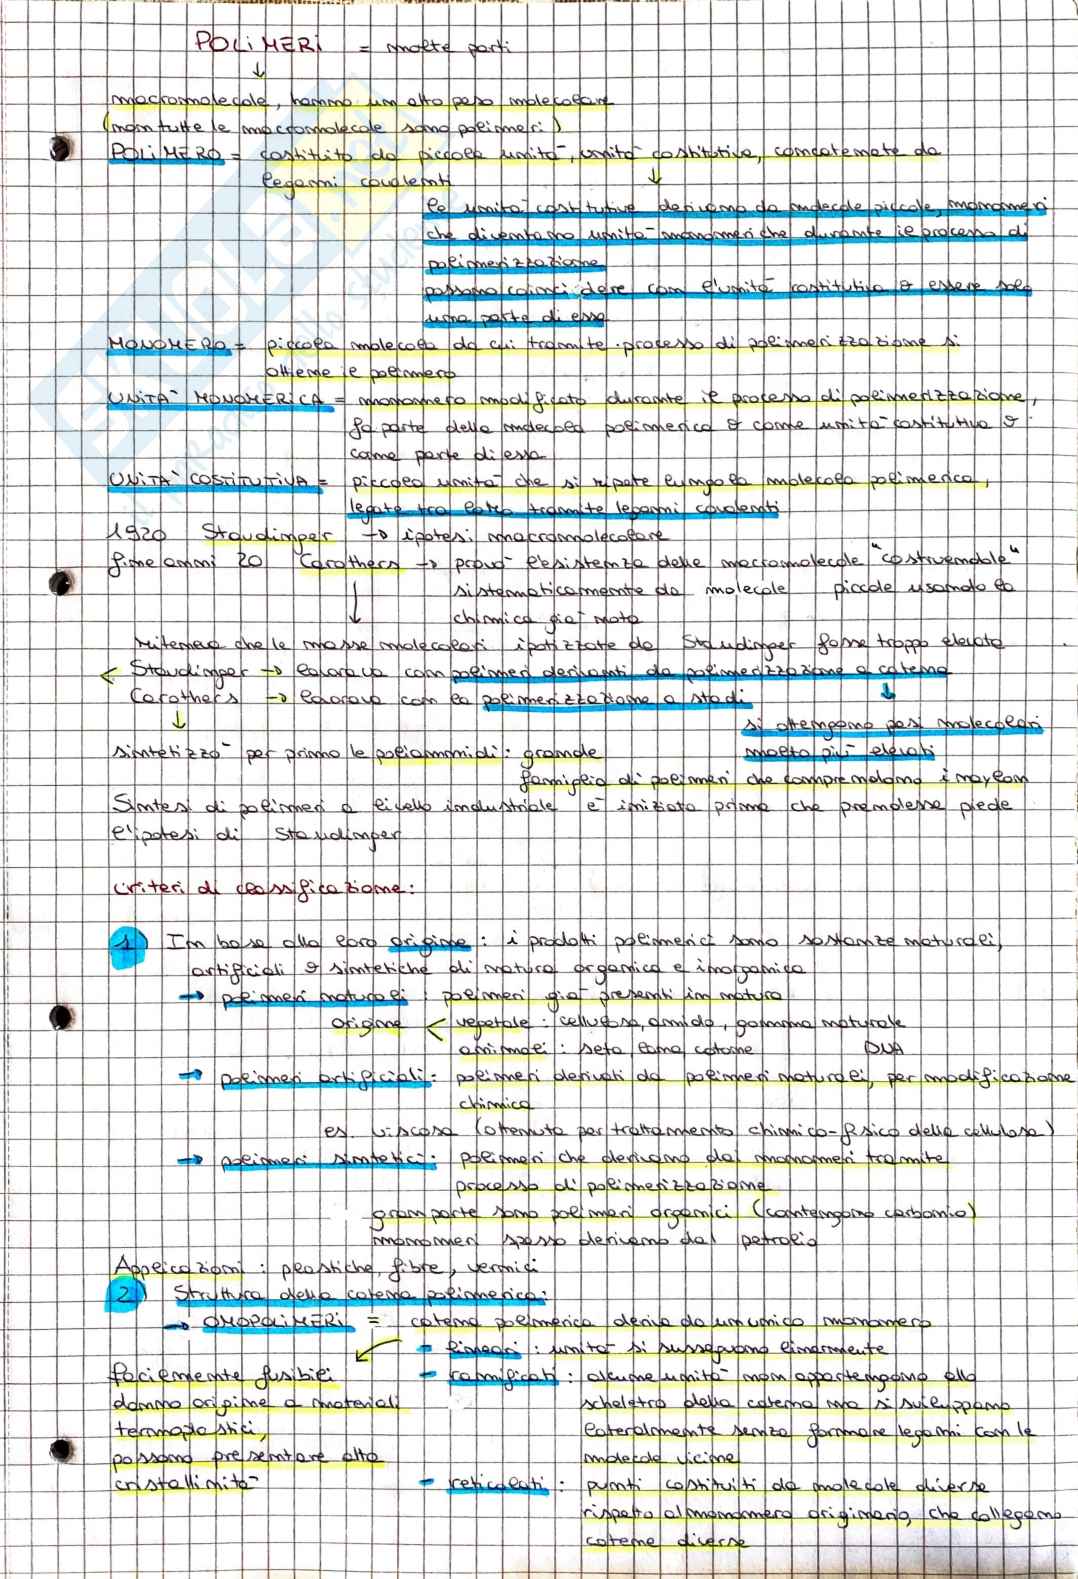 POLIMERI = molte parti
↓
macromolecole, hanno un alto peso molecolare
(non tutte le macromolecole sono polimeri)
POLIMERO = costituito da piccole unità, unità costitutive, concatenate da
legami covalenti
↓
le unità costitutive derivano da molecole piccole, monomeri
che diventano unità monomeriche durante il processo di
polimerizzazione
possono coincidere con l'unità costitutiva o essere solo
una parte di essa
MONOMERO = piccola molecola da cui tramite processo di polimerizzazione si
ottiene il polimero
UNITÀ MONOMERICA = monomero modificato durante il processo di polimerizzazione,
fa parte della molecola polimerica o come unità costitutiva o
come parte di essa
UNITÀ COSTITUTIVA = piccola unità che si ripete lungo la molecola polimerica,
legate tra loro tramite legami covalenti
1920 Staudinger → ipotesi macromolecolare
fine anni 20 Carothers → provò l'esistenza delle macromolecole "costruendole"
sistematicamente da molecole piccole usando la
chimica già nota
↓
riteneva che le masse molecolari ipotizzate da Staudinger fosse troppo elevate
Staudinger → lavorava con polimeri derivanti da polimerizzazione a catena
Carothers → lavorava con la polimerizzazione a stadi
si ottengono pesi molecolari
sintetizzò per primo le poliammidi: grande molto più elevati
famiglia di polimeri che comprendono i naylon
Sintesi di polimeri a livello industriale è iniziata prima che prendesse piede
l'ipotesi di Staudinger
criteri di classificazione:
1) In base alla loro origine: i prodotti polimerici sono sostanze naturali,
artificiali o sintetiche di natura organica e inorganica
→ polimeri naturali: polimeri già presenti in natura
origine < vegetale: cellulosa, amido, gomma naturale
animali: seta lana cotone DNA
→ polimeri artificiali: polimeri derivati da polimeri naturali, per modificazione
chimica
es. viscosa (ottenuta per trattamento chimico-fisico della cellulosa)
→ polimeri sintetici: polimeri che derivano dai monomeri tramite
processo di polimerizzazione
gran parte sono polimeri organici (contengono carbonio)
monomeri spesso derivano dal petrolio
Applicazioni: plastiche, fibre, vernici
2) Struttura della catena polimerica:
→ OMOPOLIMERI = catena polimerica deriva da un unico monomero
- lineari: unità si susseguono linearmente
facilmente fusibili - ramificati: alcune unità non appartengono allo
danno origine a materiali scheletro della catena ma si sviluppano
termoplastici, lateralmente senza formare legami con le
possono presentare alta molecole vicine
cristallinità - reticolati: punti costituiti da molecole diverse
rispetto al monomero originario, che collegano
catene diverse